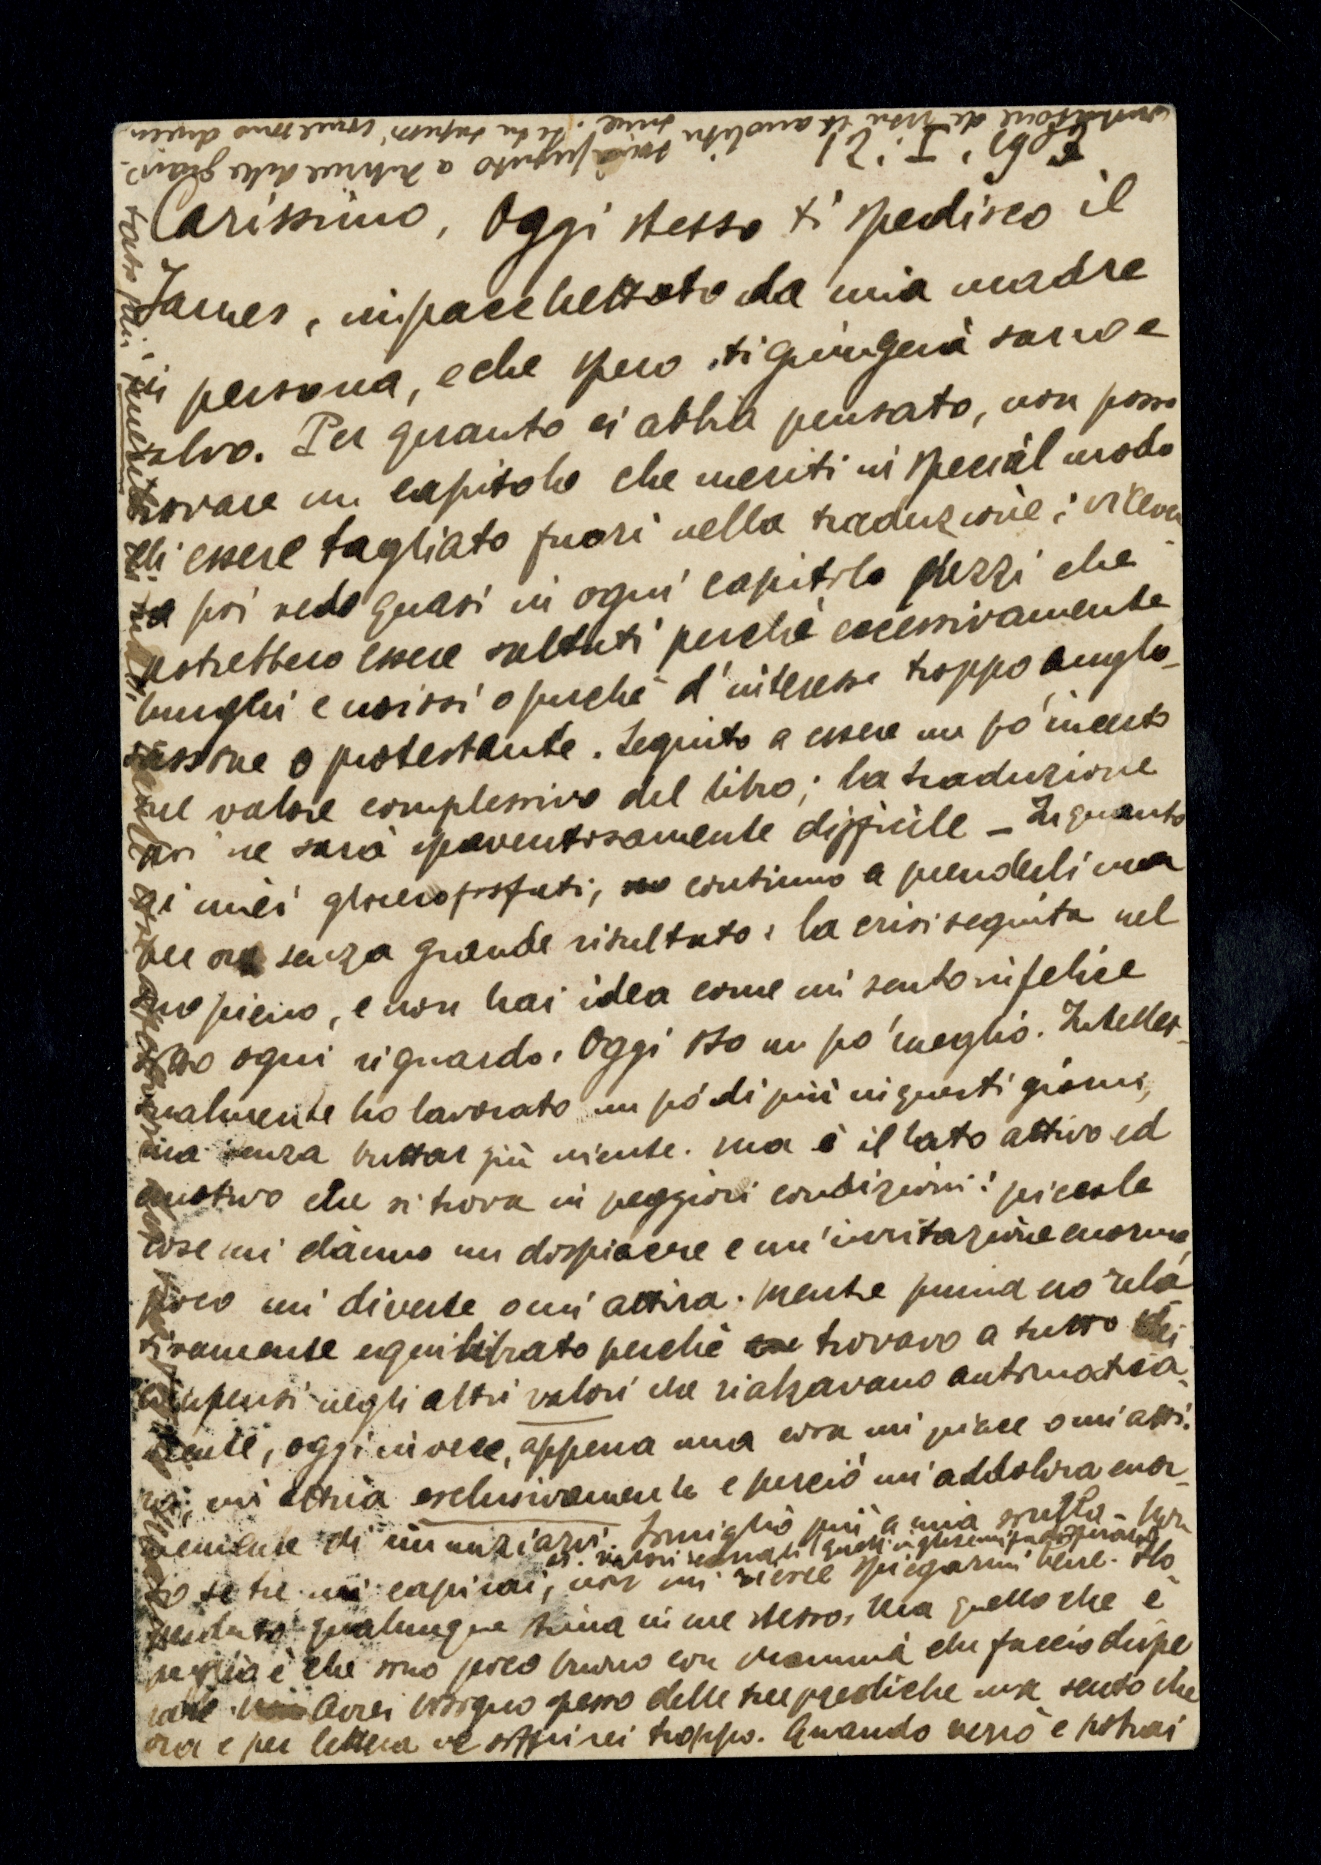 Carissimo, Oggi stesso ti spedisco il
James, impacchettato da mia madre
in persona, e che spero ti giungerà sano e
salvo. Per quanto ci abbia pensato, non posso
trovare un capitolo che meriti in special modo
di essere tagliato fuori nella traduzione; vicever
sa poi vedo quasi in ogni capitolo pezzi che
potrebbero essere saltati perchè eccessivamente
lunghi e noiosi o perchè d'interesse troppo anglo-
sassone o protestante. Seguito a essere un po' incerto
sul valore complessivo del libro; la traduzione
poi ne sarà spaventosamente difficile – In quanto
ai miei glicerofosfati, continuo a prenderli ma
per ora senza grande risultato: la crisi seguita nel
suo pieno, e non hai idea come mi sento infelice
sotto ogni riguardo. Oggi sto un po' meglio. Intellet-
tualmente ho lavorato un pó di più in questi giorni,
ma senza buttar giù niente. Ma è il lato attivo ed
emotivo che si trova in peggiori condizioni: piccole
cose mi dànno un dispiacere e un'irritazione enorme,
poco mi diverte o mi attira. Mentre prima ero rela
tivamente equilibrato perchè trovavo a tutto dei
compensi negli altri valori che rialzavano automatica-
mente, oggi invece, appena una cosa mi piace o mi atti-
ra, mi attira esclusivamente e perciò mi addolora enor-
memente di rinunziarvi. Somiglio più a mia sorella – Non
so se tu mi capirai, non mi riesce spiegarmi bene. Ho
perduto qualunque stima in me stesso. Ma quello che è
peggio è che sono poco buono con mammà che faccio dispe
rare. Avrei bisogno spesso delle tue prediche ma sento che
ora e per lettera ne soffrirei troppo. Quando verrò e potrai